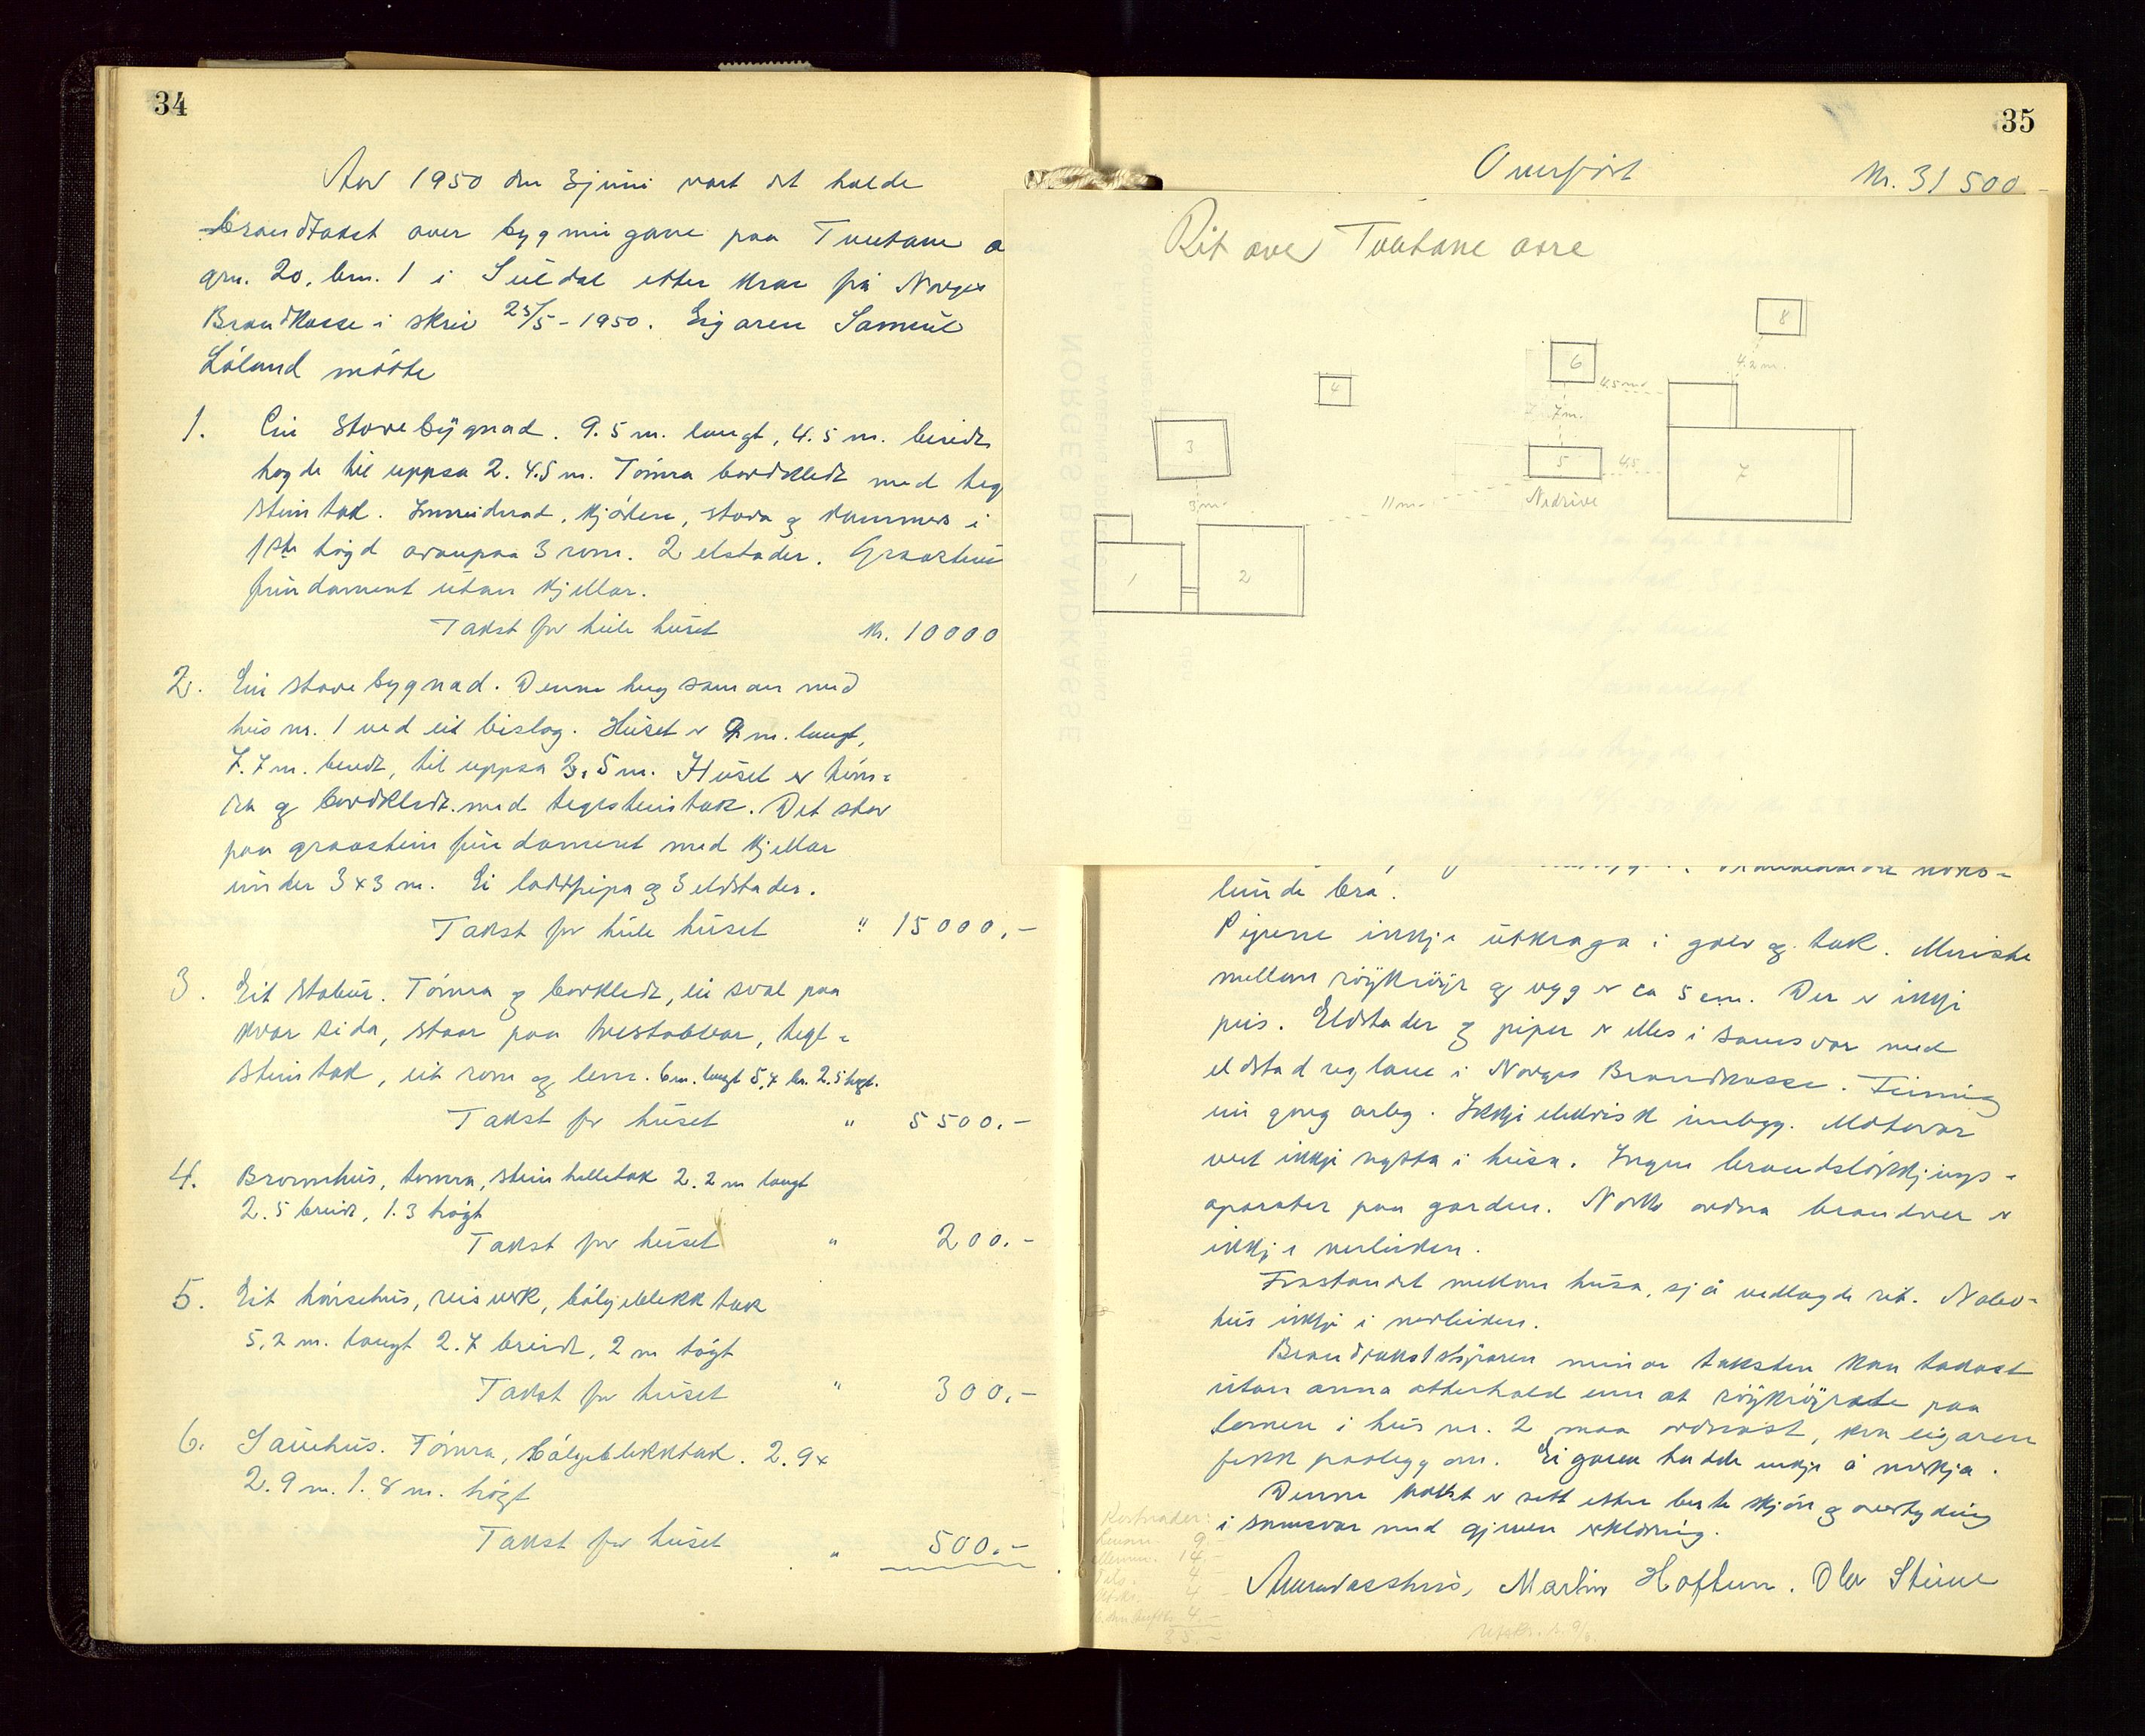 34
Aar 1950 den 3 juni vart det halde
brandtakst over bygningane paa Tveitane
gnr. 20, bnr. 1 i Suldal etter krav frå Norges
Brandkasse i skriv 25/5 - 1950. Eigaren Samuel
Løland møtte
1. Ein stovebygnad. 9.5 m. langt, 4.5 m. breidt
høgde til uppsa 2. 4.5 m. Tømra bordkledt med teg
steintak. Innreidnad, kjøken, stova og kammers i
1ste høgd ovanpaa 3 rom. 2 elstader. Graastein
fundament utan kjellar.
Takst for heile huset kr. 10000
2. Ein stovebygnad. Denne heng saman med
hus nr. 1 ved eit bislag. Huset er 9 m. langt,
7.7 m. breidt, til uppsa 3.5 m. Huset er tøm-
ra og bordkledt med teglsteinstak. Det star
paa graastein fundament med kjellar
under 3 x 3 m. Ei loddpipa og 3 eldstader.
Takst for heile huset " 15000.-
3. Eit stabur. Tømra og borkledt, ei sval paa
kvar sida, staar paa trestabbar, tegl-
steintak, eit rom og lem. 6 m. langt 5,7 br. 2.5 høgt.
Takst for huset " 5500.-
4. Brornhus, tømra, steinhelletak 2.2 m langt
2.5 breidt, 1.3 høgt
Takst for huset " 200.-
5. Eit hønsehus, reisverk, bølgjeblekktak
5.2 m. langt 2.7 breidt, 2 m høgt
Takst for huset " 300.-
6. Sauehus. Tømra, bølgeblekktak. 2.9 x
2.9 m. 1.8 m. høgt
Takst for huset " 500.-
35
Overført kr. 31 500
Rit over Tveitane øvre
8
4.2 m.
6
4.5 m.
4
7 m.
3
5
4.5
7
3 m.
11 m.
Nedrive
1
2
NORGES BRANDKASSE
lunde bra.
Pipene inkje utkraga i golv og tak. Minste
mellom røykrøyr og vegg er ca 5 cm. Der er inkje
peis. Eldstader og piper er elles i samsvar med
eldstadreglane i Norges Brandkasse. Feiing
ein gong arleg. Ikkje elektrisk innlegg. Motorar
vert inkje nytta i husa. Ingen brandsløkkjings-
aparater paa garden. Noko ordna brandver er
inkkje verleiken.
Frastandet mellom husa, sjå vedlagde rit. Nabo-
hus inkje i nerleiken.
Brandtakststyraren meiner taksten kan takast
utan anna atterhald enn at røykrøyrate paa
lemen i hus nr. 2 maa ordnast, kva eigaren
fekk paalegg om. Eigaren hadde inkje å merkja.
Denne takst er sett etter beste skjøn og overtyding
i samsvar med gjeven erklæring.
Martin Hoftun. Ola Steine
Kostnader:
9.-
14.-
4
4
4.-
35.-